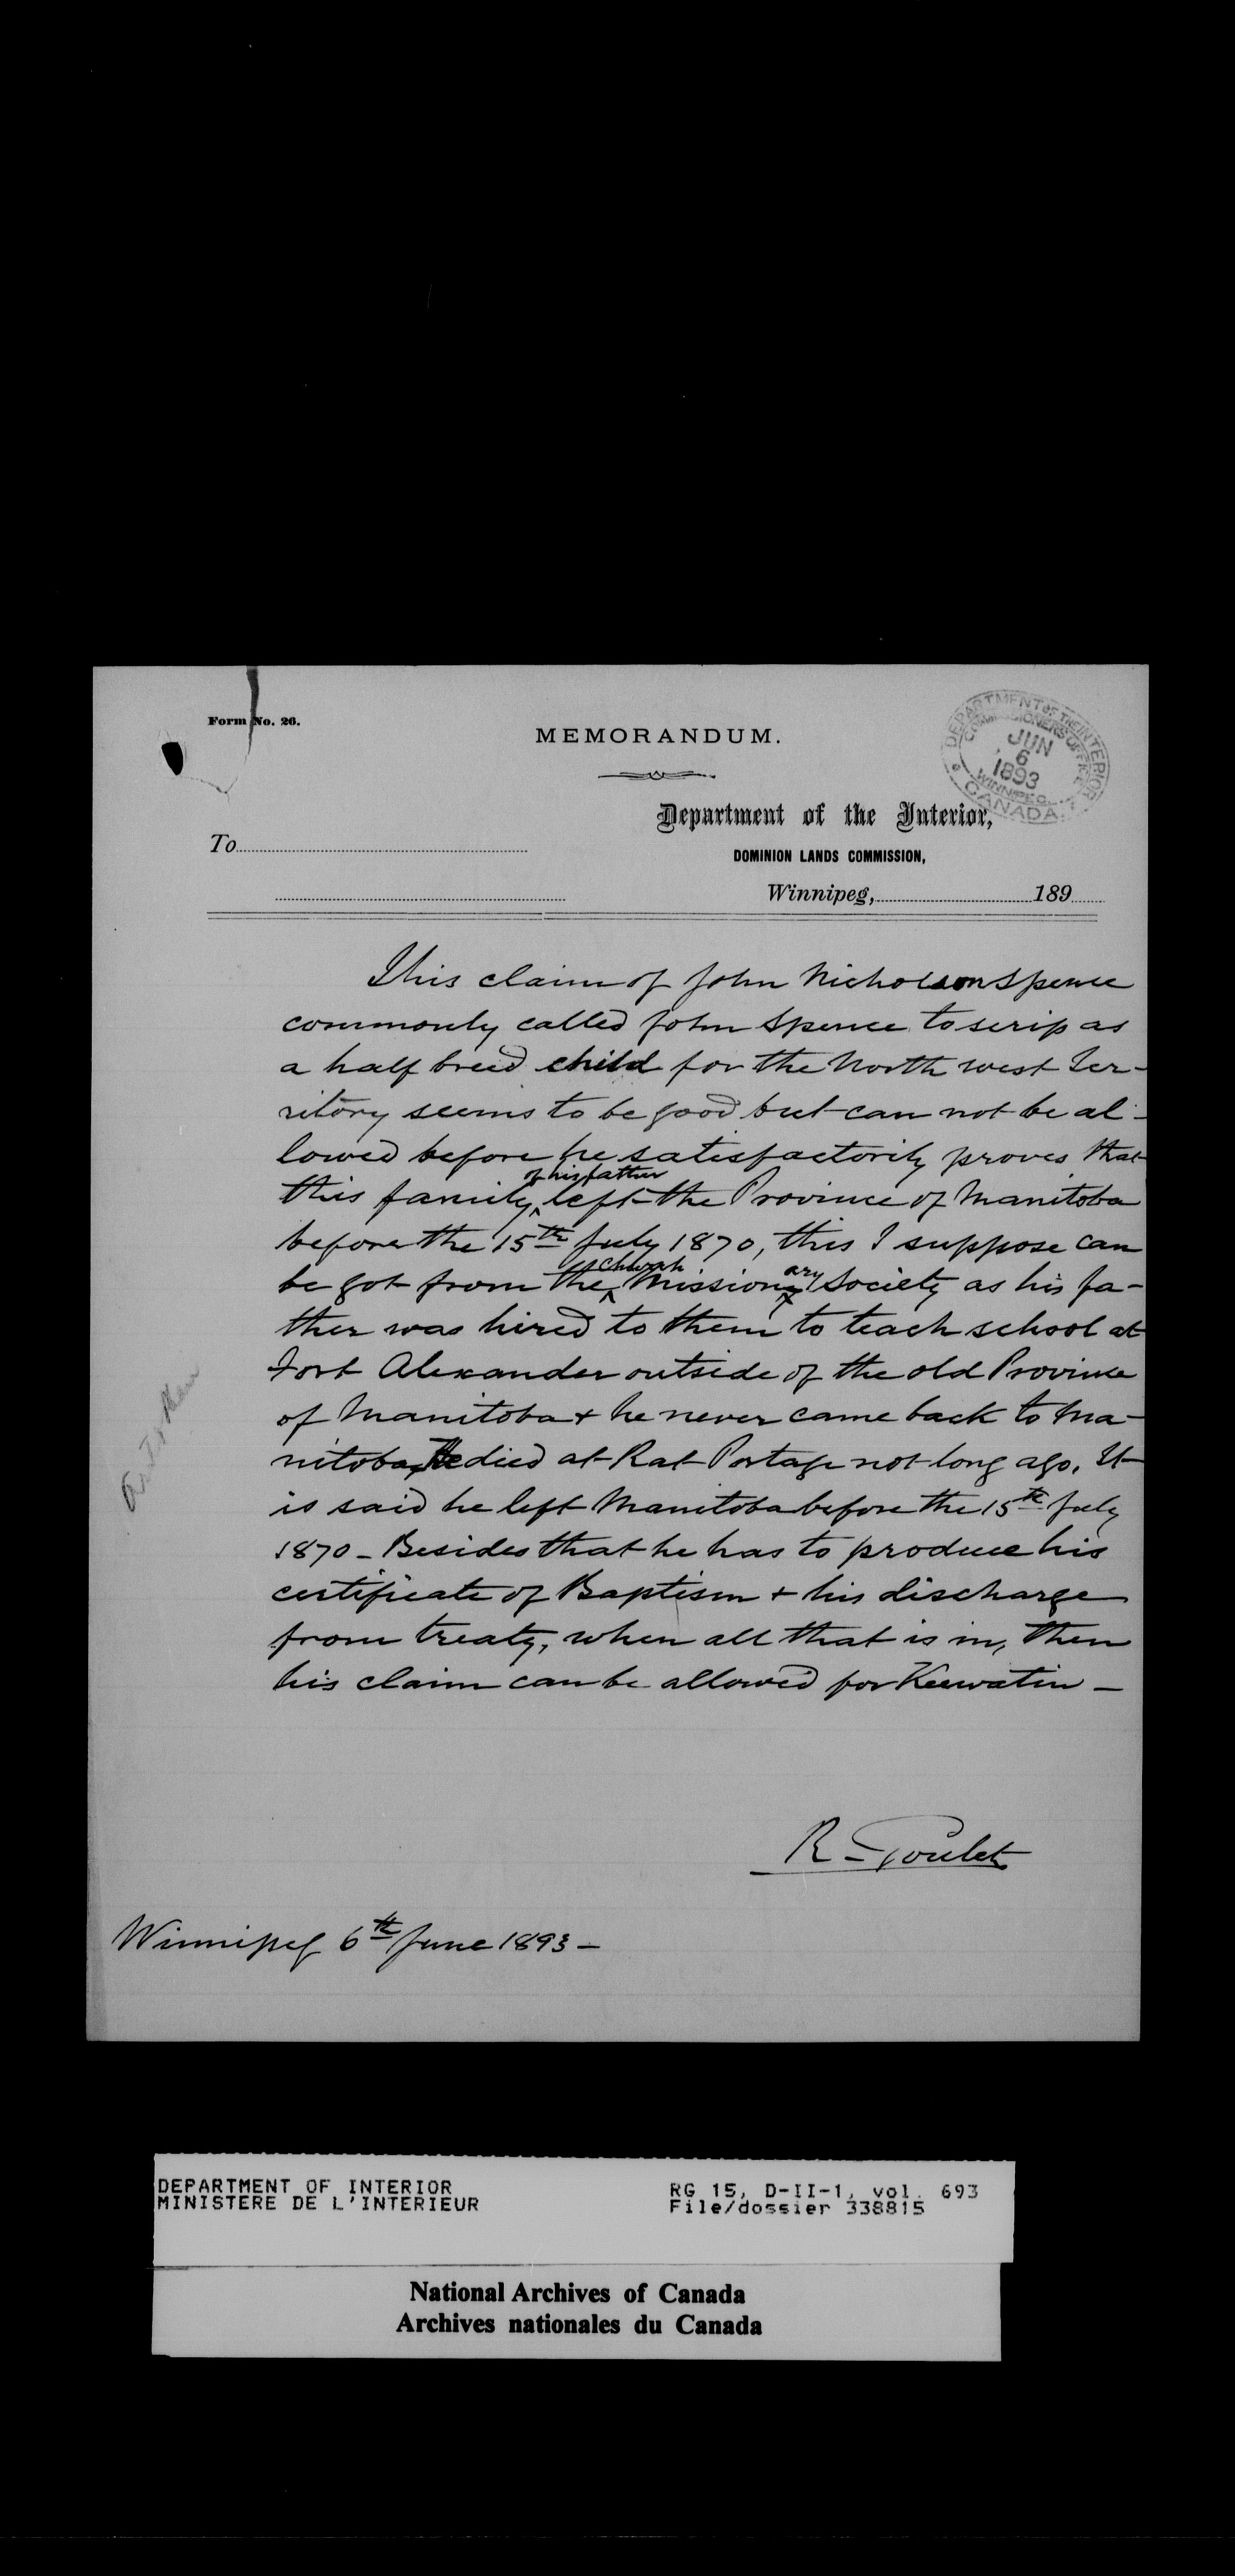 Form No. 26.
MEMORANDUM.
DEPARTMENT OF THE INTERIOR
COMMISSIONERS OFFICE
JUN
6
1893
WINNIPEG
CANADA
Department of the Interior,
To
DOMINION LANDS COMMISSION,
Winnipeg, 189
This claim of John Nicholson Spence
commonly called John Spence to scrip as
a half breed child for the North west Ter-
ritory seems to be good but can not be al-
lowed before he satisfactorily proves that
of his father
this family left the Province of Manitoba
before the 15th July 1870, this I suppose can
church ary
be got from the Mission Society as his fa-
ther was hired to them to teach school at
Fort Alexander outside of the old Province
of Manitoba + he never came back to Ma-
nitoba, He died at Rat Portage not long ago. It
is said he left Manitoba before the 15th July
1870 - Besides that he has to produce his
certificate of Baptism + his discharge
from treaty, when all that is in, then
his claim can be allowed for Keewatin -
R. Goulet
Winnipeg 6th June 1893 -
DEPARTMENT OF INTERIOR RG 15, D-II-1, vol. 693
MINISTERE DE L'INTERIEUR File/dossier 338815
National Archives of Canada
Archives nationales du Canada